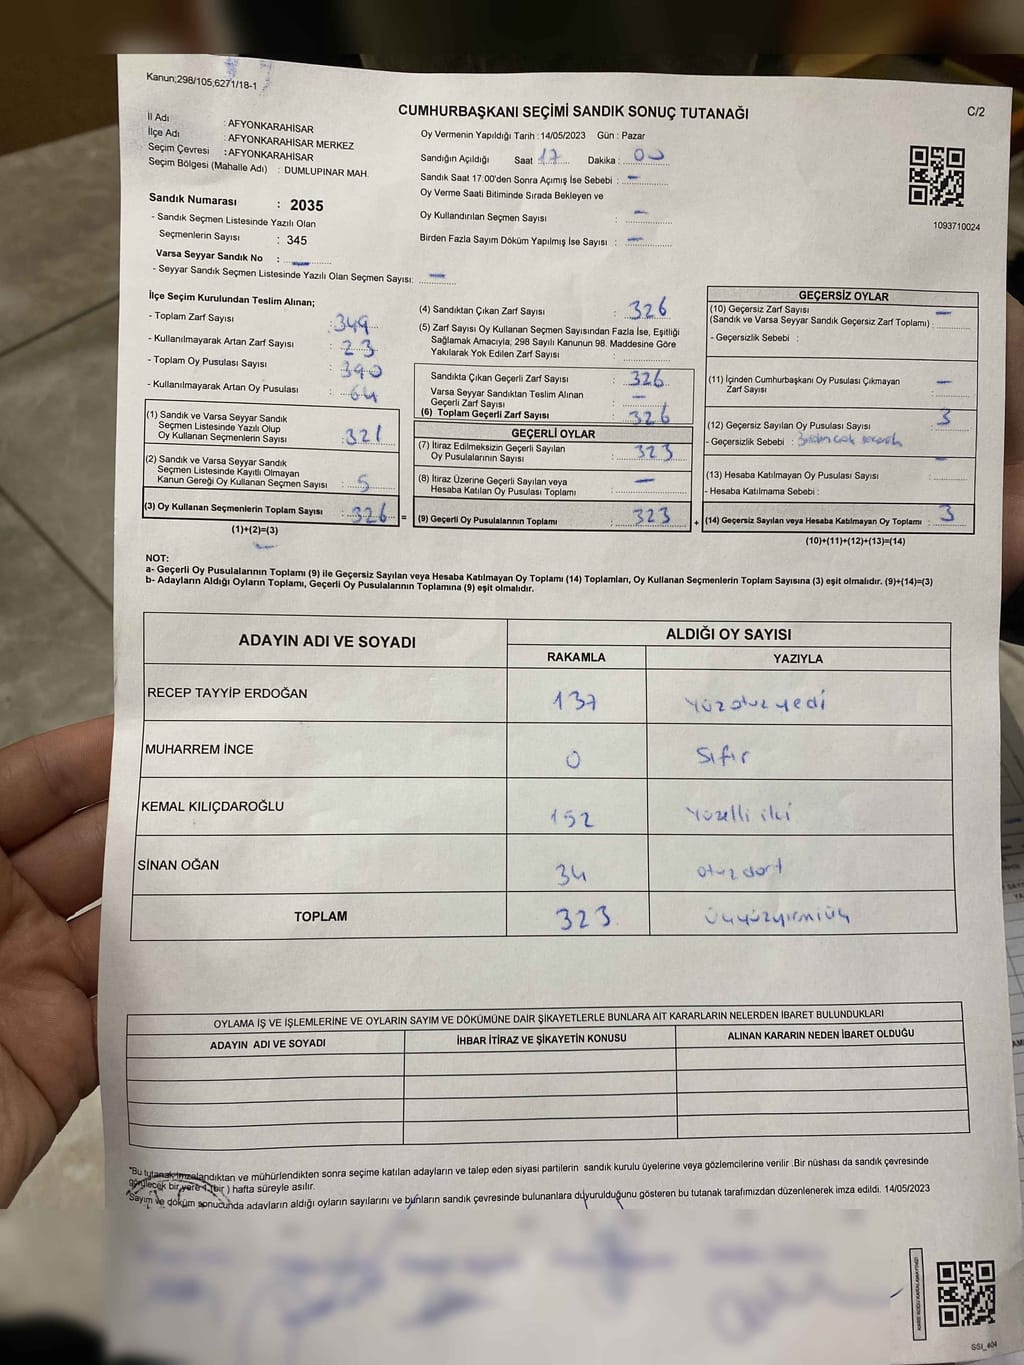 Kanun;298/105;6271/18-1
CUMHURBAŞKANI SEÇİMİ SANDIK SONUÇ TUTANAĞI
C/2
İl Adı : AFYONKARAHİSAR
İlçe Adı : AFYONKARAHİSAR MERKEZ
Seçim Çevresi : AFYONKARAHİSAR
Seçim Bölgesi (Mahalle Adı) : DUMLUPINAR MAH.
Sandık Numarası : 2035
- Sandık Seçmen Listesinde Yazılı Olan
Seçmenlerin Sayısı : 345
Varsa Seyyar Sandık No : —
- Seyyar Sandık Seçmen Listesinde Yazılı Olan Seçmen Sayısı: —
Oy Vermenin Yapıldığı Tarih : 14/05/2023 Gün : Pazar
Sandığın Açıldığı Saat 17 Dakika : 00
Sandık Saat 17:00'den Sonra Açımış İse Sebebi : —
Oy Verme Saati Bitiminde Sırada Bekleyen ve
Oy Kullandırılan Seçmen Sayısı : —
Birden Fazla Sayım Döküm Yapılmış İse Sayısı : —
1093710024
İlçe Seçim Kurulundan Teslim Alınan;
- Toplam Zarf Sayısı : 349
- Kullanılmayarak Artan Zarf Sayısı : 23
- Toplam Oy Pusulası Sayısı : 390
- Kullanılmayarak Artan Oy Pusulası : 64
(1) Sandık ve Varsa Seyyar Sandık
Seçmen Listesinde Yazılı Olup
Oy Kullanan Seçmenlerin Sayısı : 321
(2) Sandık ve Varsa Seyyar Sandık
Seçmen Listesinde Kayıtlı Olmayan
Kanun Gereği Oy Kullanan Seçmen Sayısı : 5
(3) Oy Kullanan Seçmenlerin Toplam Sayısı : 326 =
(1)+(2)=(3)
(4) Sandıktan Çıkan Zarf Sayısı : 326
(5) Zarf Sayısı Oy Kullanan Seçmen Sayısından Fazla İse, Eşitliği
Sağlamak Amacıyla; 298 Sayılı Kanunun 98. Maddesine Göre
Yakılarak Yok Edilen Zarf Sayısı :
Sandıkta Çıkan Geçerli Zarf Sayısı : 326
Varsa Seyyar Sandıktan Teslim Alınan
Geçerli Zarf Sayısı : —
(6) Toplam Geçerli Zarf Sayısı : 326
GEÇERLİ OYLAR
(7) İtiraz Edilmeksizin Geçerli Sayılan
Oy Pusulalarının Sayısı : 323
(8) İtiraz Üzerine Geçerli Sayılan veya
Hesaba Katılan Oy Pusulası Toplamı : —
(9) Geçerli Oy Pusulalarının Toplamı : 323 +
GEÇERSİZ OYLAR
(10) Geçersiz Zarf Sayısı
(Sandık ve Varsa Seyyar Sandık Geçersiz Zarf Toplamı) : —
- Geçersizlik Sebebi :
(11) İçinden Cumhurbaşkanı Oy Pusulası Çıkmayan
Zarf Sayısı : —
(12) Geçersiz Sayılan Oy Pusulası Sayısı : 3
- Geçersizlik Sebebi :
(13) Hesaba Katılmayan Oy Pusulası Sayısı : —
- Hesaba Katılmama Sebebi :
(14) Geçersiz Sayılan veya Hesaba Katılmayan Oy Toplamı : 3
(10)+(11)+(12)+(13)=(14)
NOT:
a- Geçerli Oy Pusulalarının Toplamı (9) ile Geçersiz Sayılan veya Hesaba Katılmayan Oy Toplamı (14) Toplamları, Oy Kullanan Seçmenlerin Toplam Sayısına (3) eşit olmalıdır. (9)+(14)=(3)
b- Adayların Aldığı Oyların Toplamı, Geçerli Oy Pusulalarının Toplamına (9) eşit olmalıdır.
ADAYIN ADI VE SOYADI
ALDIĞI OY SAYISI
RAKAMLA YAZIYLA
RECEP TAYYİP ERDOĞAN 137 Yüzotuzyedi
MUHARREM İNCE 0 Sıfır
KEMAL KILIÇDAROĞLU 152 Yüzelli iki
SİNAN OĞAN 34 otuzdört
TOPLAM 323 Üçyüzyirmiüç
OYLAMA İŞ VE İŞLEMLERİNE VE OYLARIN SAYIM VE DÖKÜMÜNE DAİR ŞİKAYETLERLE BUNLARA AİT KARARLARIN NELERDEN İBARET BULUNDUKLARI
ADAYIN ADI VE SOYADI İHBAR İTİRAZ VE ŞİKAYETİN KONUSU ALINAN KARARIN NEDEN İBARET OLDUĞU
*Bu tutanak imzalandıktan ve mühürlendikten sonra seçime katılan adayların ve talep eden siyasi partilerin sandık kurulu üyelerine veya gözlemcilerine verilir .Bir nüshası da sandık çevresinde
görülecek bir yere 1 (bir ) hafta süreyle asılır.
*Sayım ve döküm sonucunda adayların aldığı oyların sayılarını ve bunların sandık çevresinde bulunanlara duyurulduğunu gösteren bu tutanak tarafımızdan düzenlenerek imza edildi. 14/05/2023
KARE KODU KARALAMAYINIZ!
SSI_404